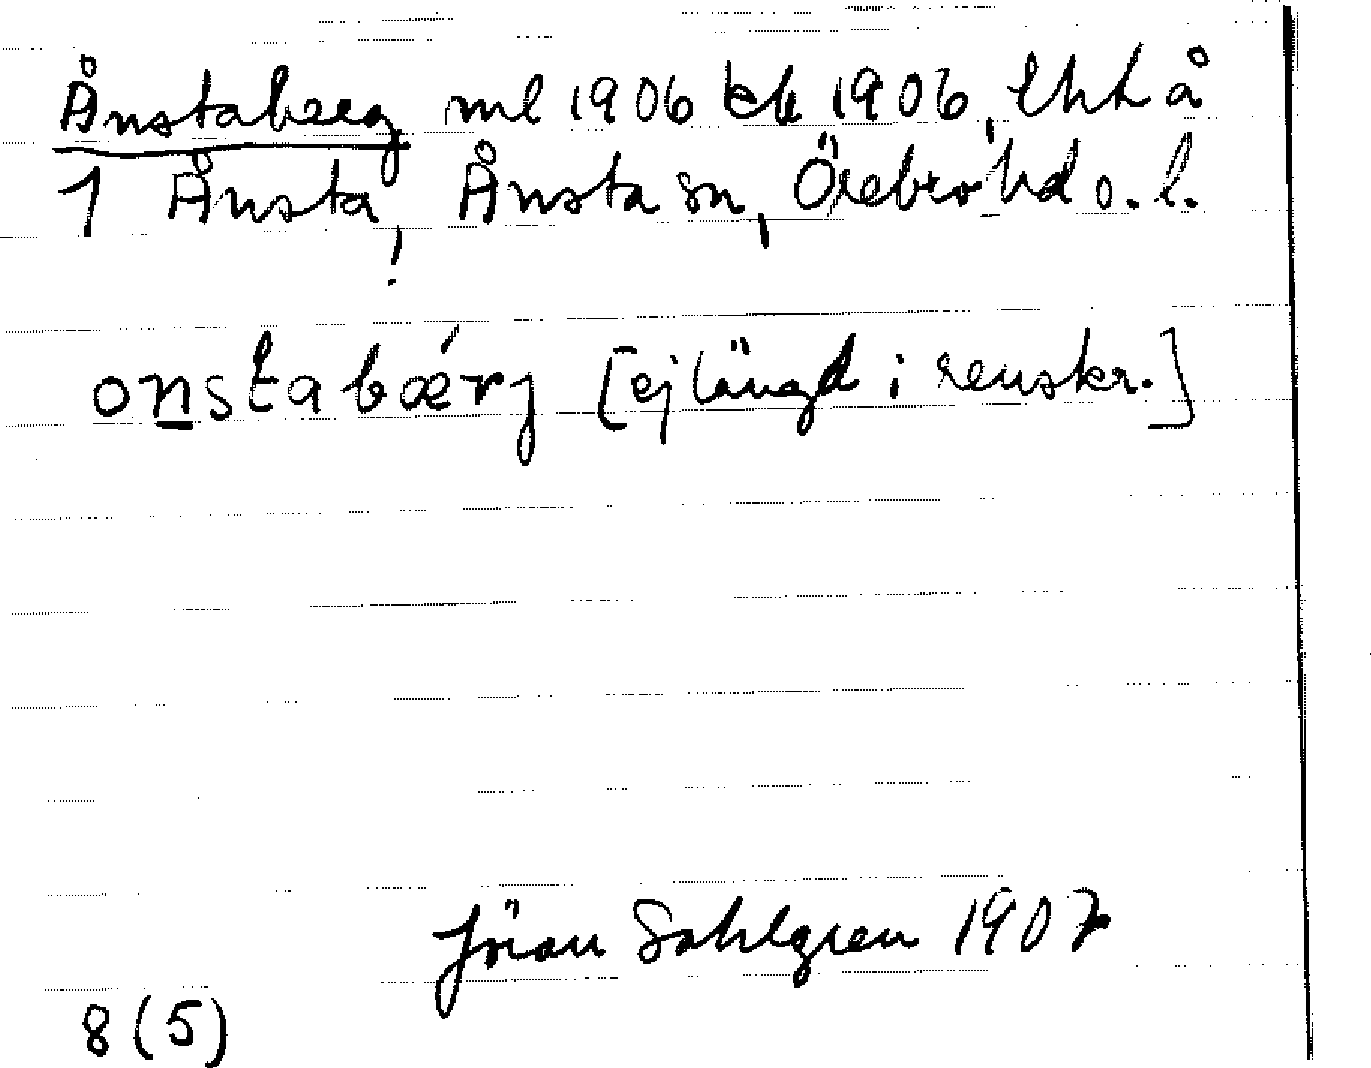 Ånstaberg ml 1906 ek 1906, lht å
1 Ånsta, Ånsta sn, Örebro hd ö. l.
!
onstabǽrj [ej längd i renskr.]
Jöran Sahlgren 1907
8 (5)